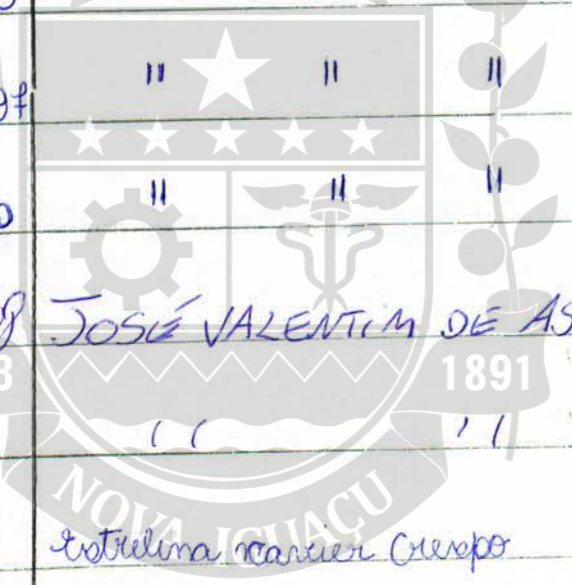 " " "
" " "
JOSÉ VALENTIM DE AS
1891
" "
NOVA IGUAÇU
Estrelina xavier Crespo